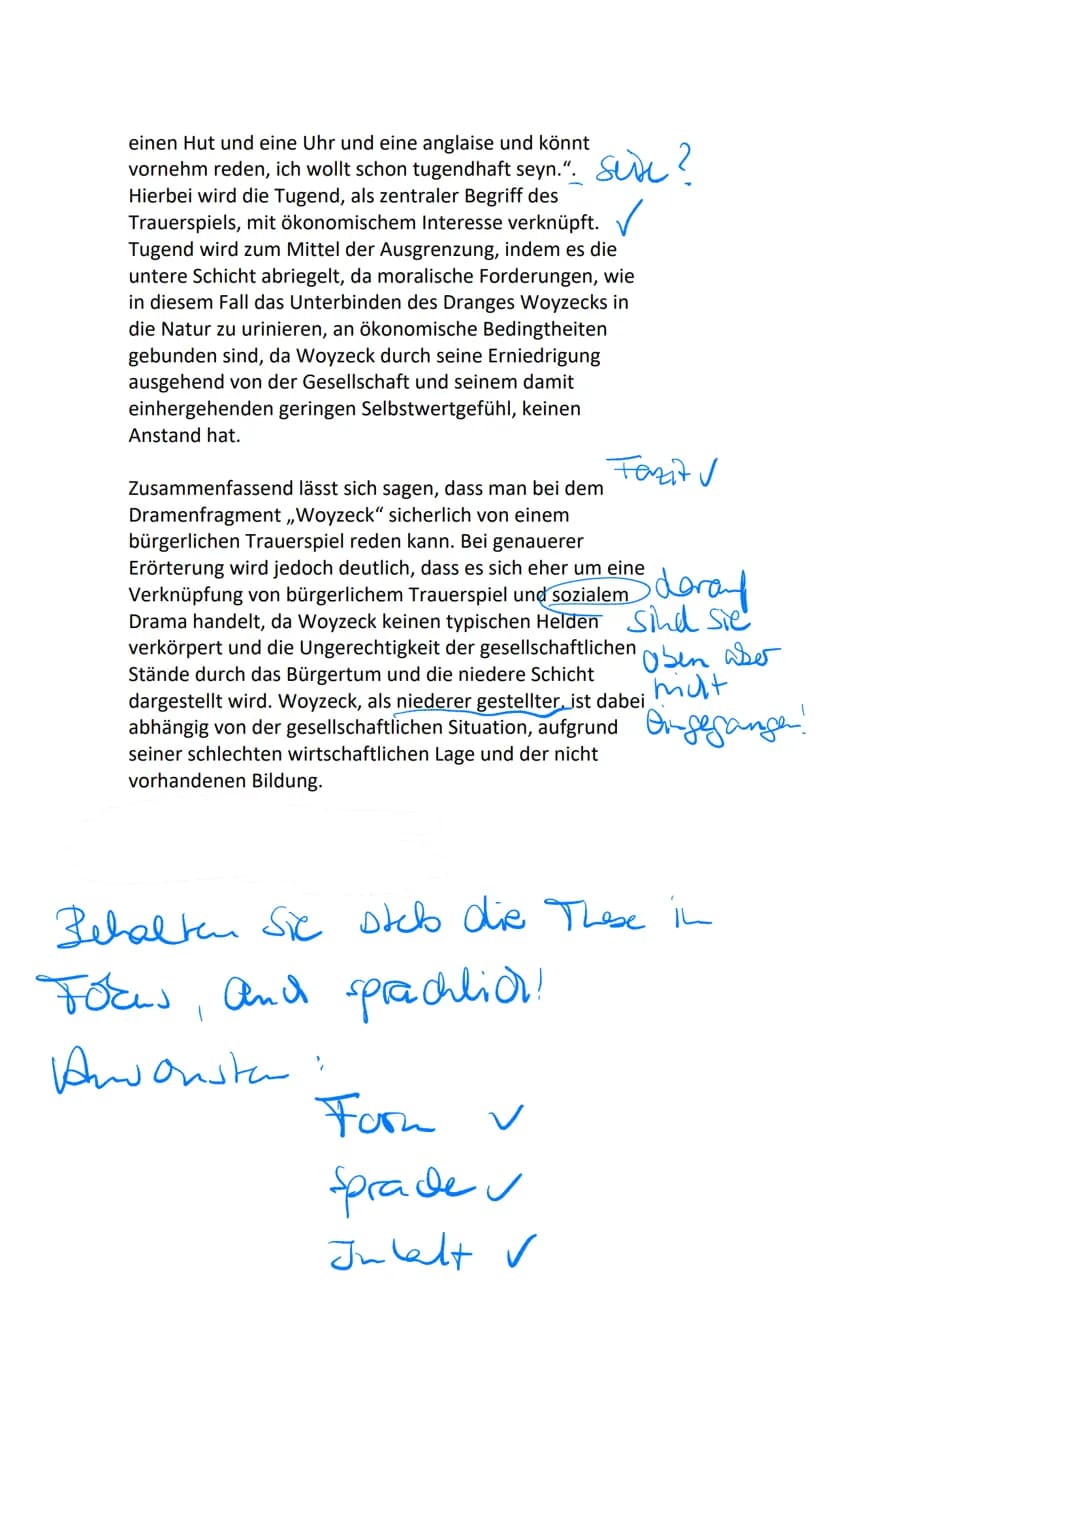 einen Hut und eine Uhr und eine anglaise und könnt
vornehm reden, ich wollt schon tugendhaft seyn.“. Seite?
Hierbei wird die Tugend, als zentraler Begriff des
Trauerspiels, mit ökonomischem Interesse verknüpft. ✓
Tugend wird zum Mittel der Ausgrenzung, indem es die
untere Schicht abriegelt, da moralische Forderungen, wie
in diesem Fall das Unterbinden des Dranges Woyzecks in
die Natur zu urinieren, an ökonomische Bedingtheiten
gebunden sind, da Woyzeck durch seine Erniedrigung
ausgehend von der Gesellschaft und seinem damit
einhergehenden geringen Selbstwertgefühl, keinen
Anstand hat.
Fazit ✓
Zusammenfassend lässt sich sagen, dass man bei dem
Dramenfragment „Woyzeck“ sicherlich von einem
bürgerlichen Trauerspiel reden kann. Bei genauerer
Erörterung wird jedoch deutlich, dass es sich eher um eine
Verknüpfung von bürgerlichem Trauerspiel und sozialem
Drama handelt, da Woyzeck keinen typischen Helden
verkörpert und die Ungerechtigkeit der gesellschaftlichen
Stände durch das Bürgertum und die niedere Schicht
dargestellt wird. Woyzeck, als niederer gestellter, ist dabei
abhängig von der gesellschaftlichen Situation, aufgrund
seiner schlechten wirtschaftlichen Lage und der nicht
vorhandenen Bildung.
darauf
sind sie
oben aber
nicht
eingegangen!
Behalten Sie stets die These im
Fokus, auch sprachlich!
Ansonsten:
Form ✓
Sprache ✓
Inhalt ✓